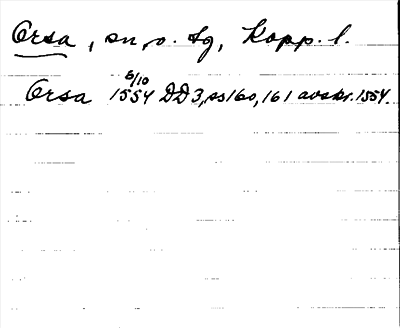 Orsa, sn, o. tg, Kopp. l.
Orsa 1554 6/10 DD 3, ss 160, 161 avskr. 1554.